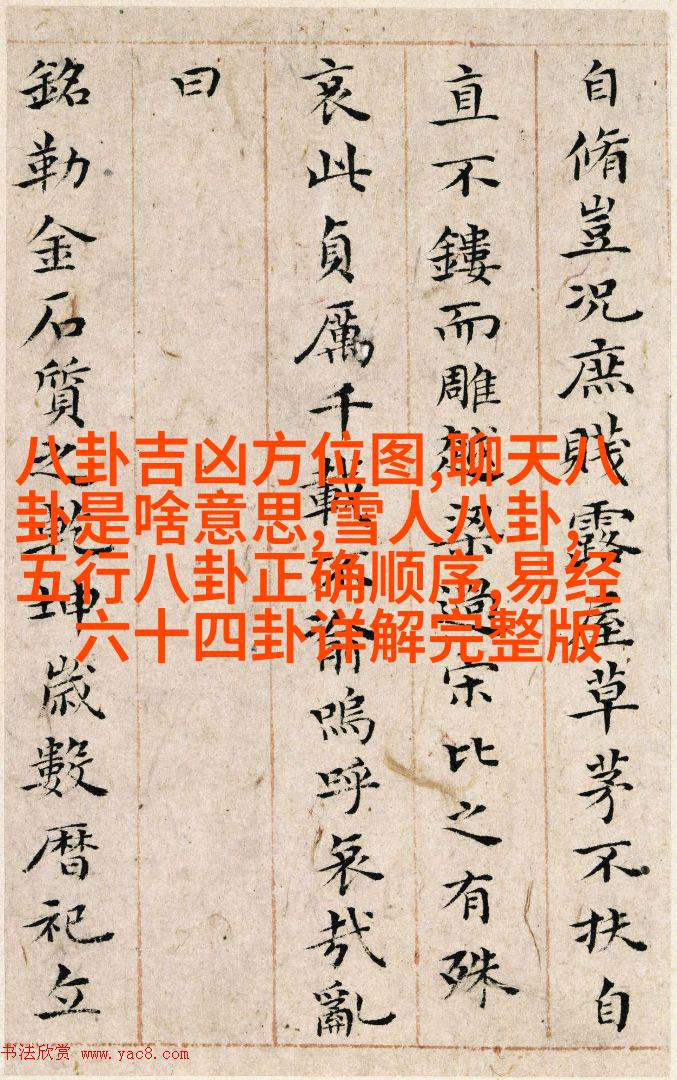 自脩豈况庶賤露草茅不扶自
直不鏤而雕越梁過宋比之有殊
哀此貞厲千載不渝嗚呼哀哉亂
曰
銘勒金石質之乾坤歲數暦祀立
八卦吉凶方位图,聊天八
卦是啥意思,雪人八卦,
五行八卦正确顺序,易经
六十四卦详解完整版
书法欣赏 www.yac8.com